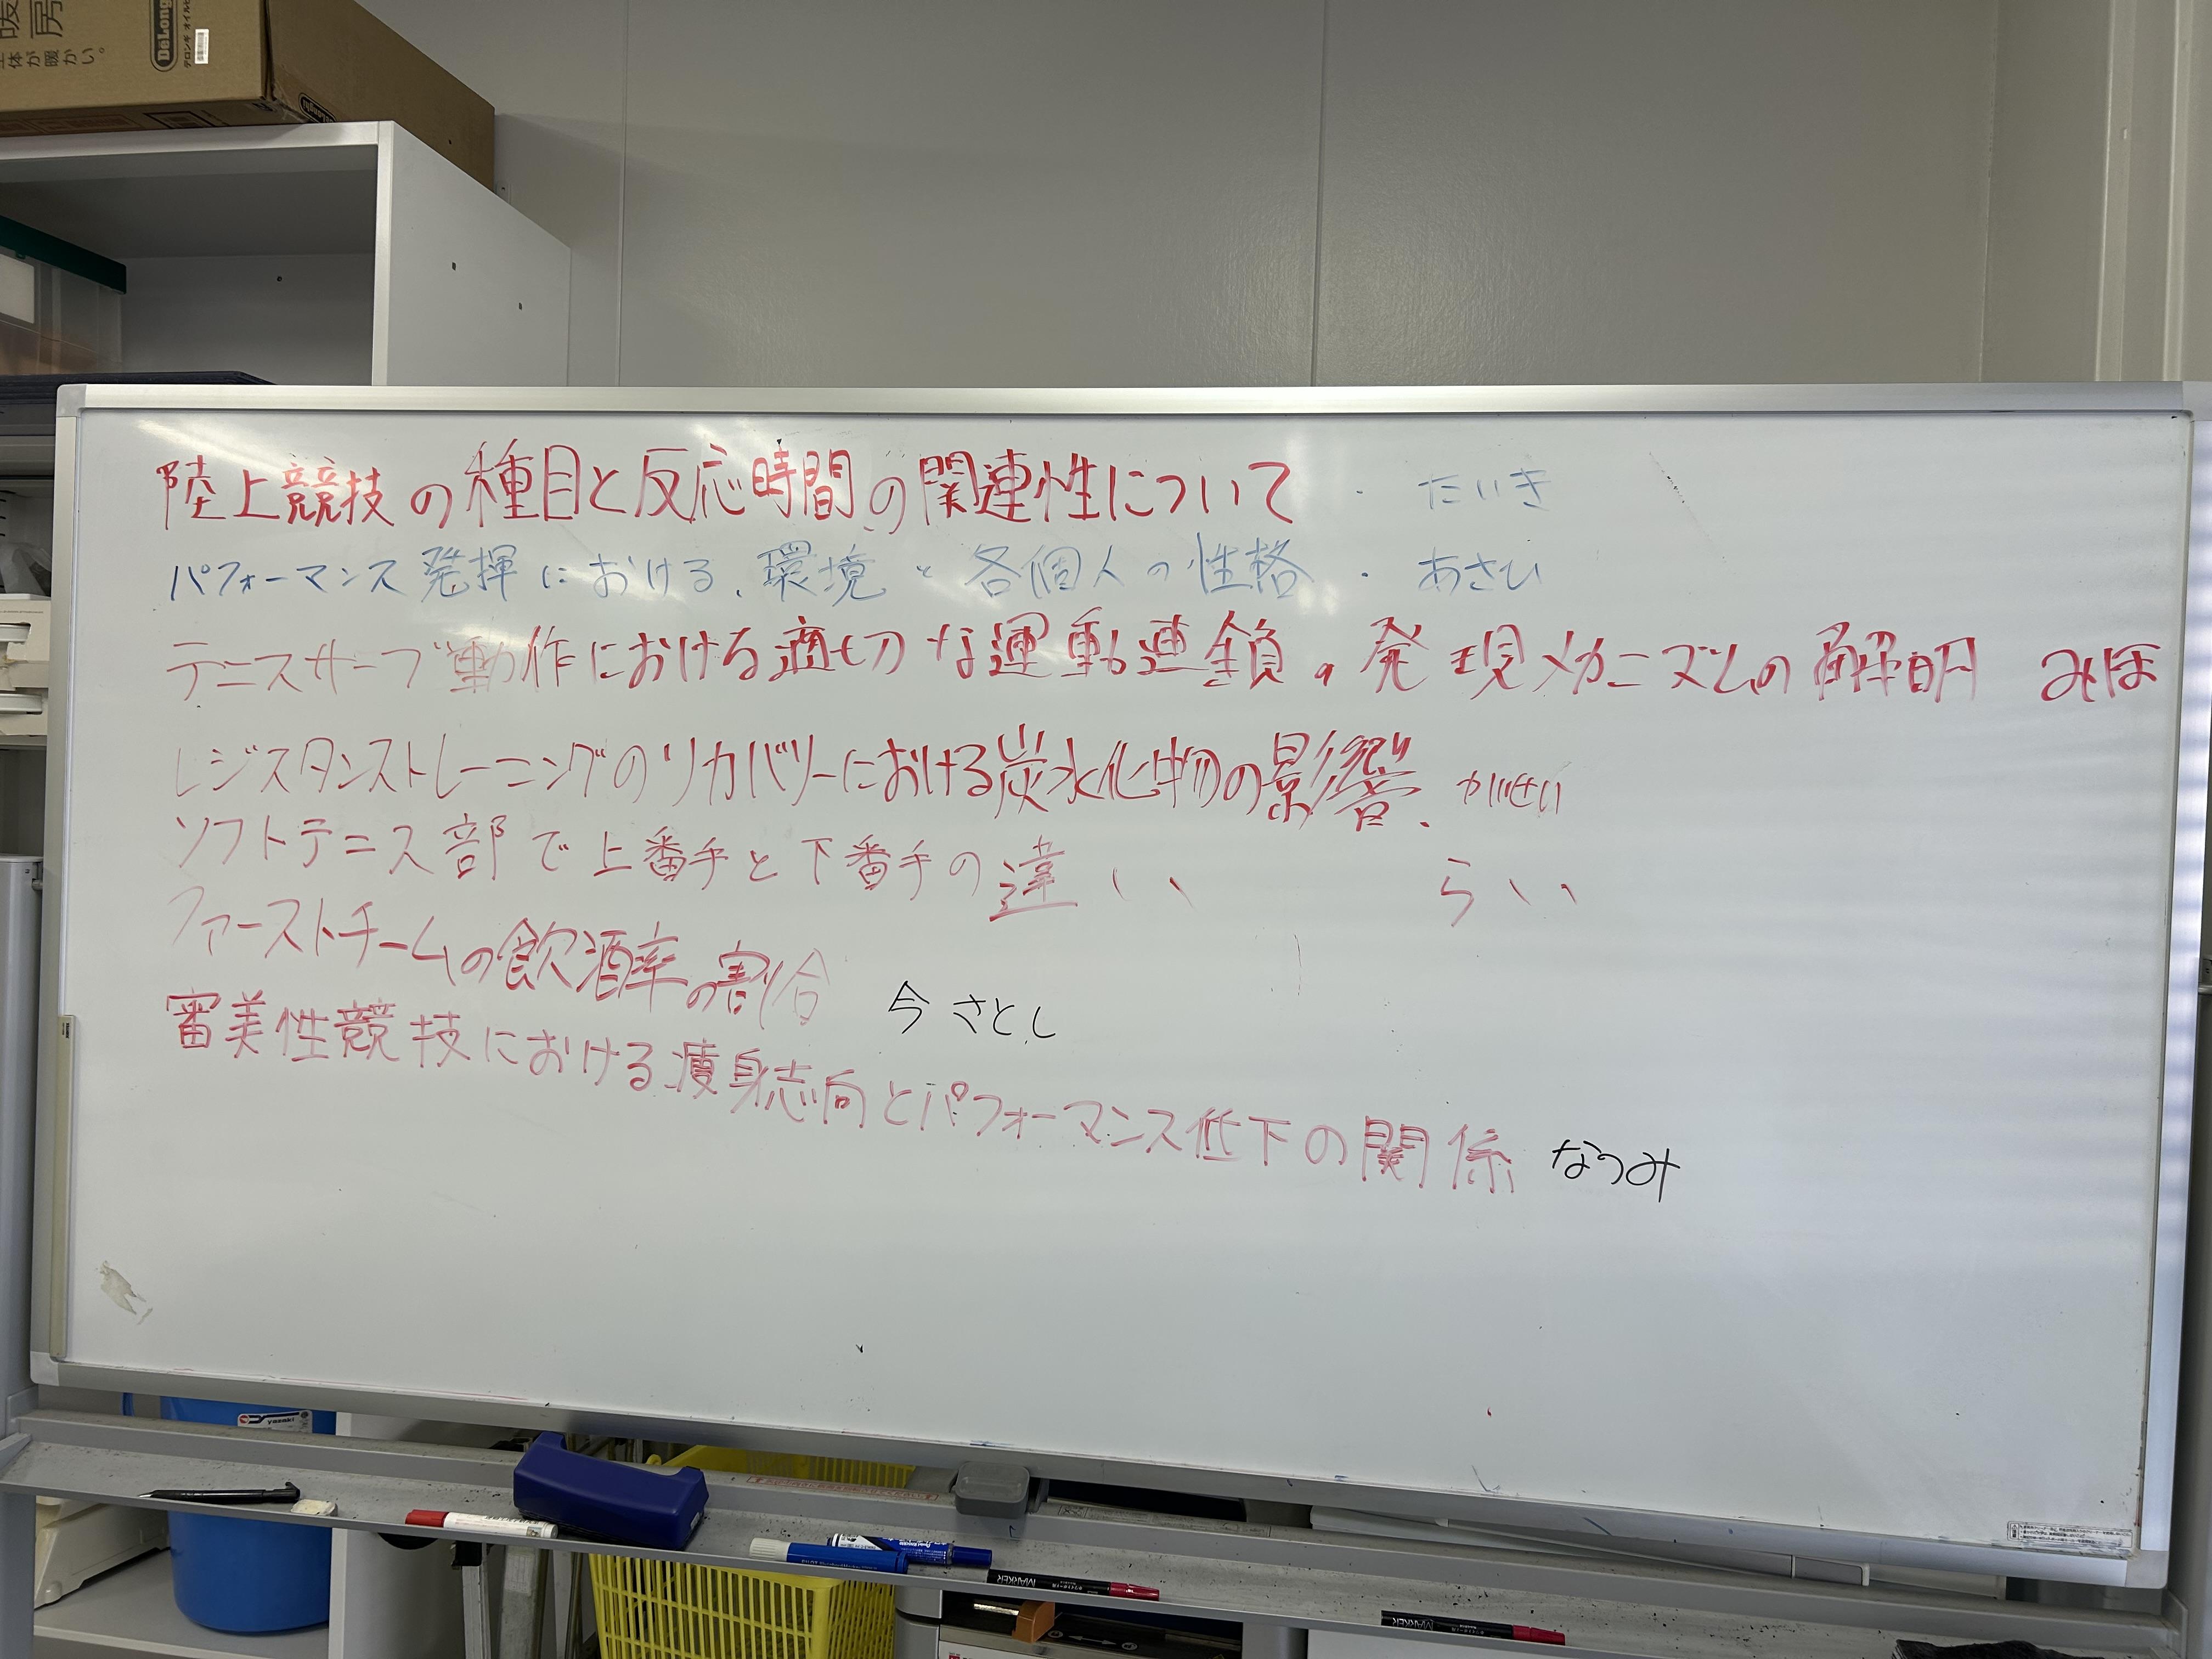 房
体が暖かい。
DeLonghi
デロンギ
DeLonghi
陸上競技の種目と反応時間の関連性について ・ たいき
パフォーマンス発揮における、環境と各個人の性格 ・ あさひ
テニスサーブ動作における適切な運動連鎖の発現メカニズムの解明 みほ
レジスタンストレーニングのリカバリーにおける炭水化物の影響.
ソフトテニス部で上番手と下番手の違い らい
ファーストチームの飲酒率の割合 今 さとし
審美性競技における痩身志向とパフォーマンス低下の関係 なつみ
yazaki
MARKER
MARKER